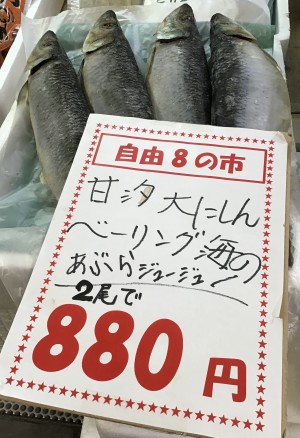 自由8の市
甘汐 大にしん
ベーリング海の
あぶらジュージュー!
2尾で
880円